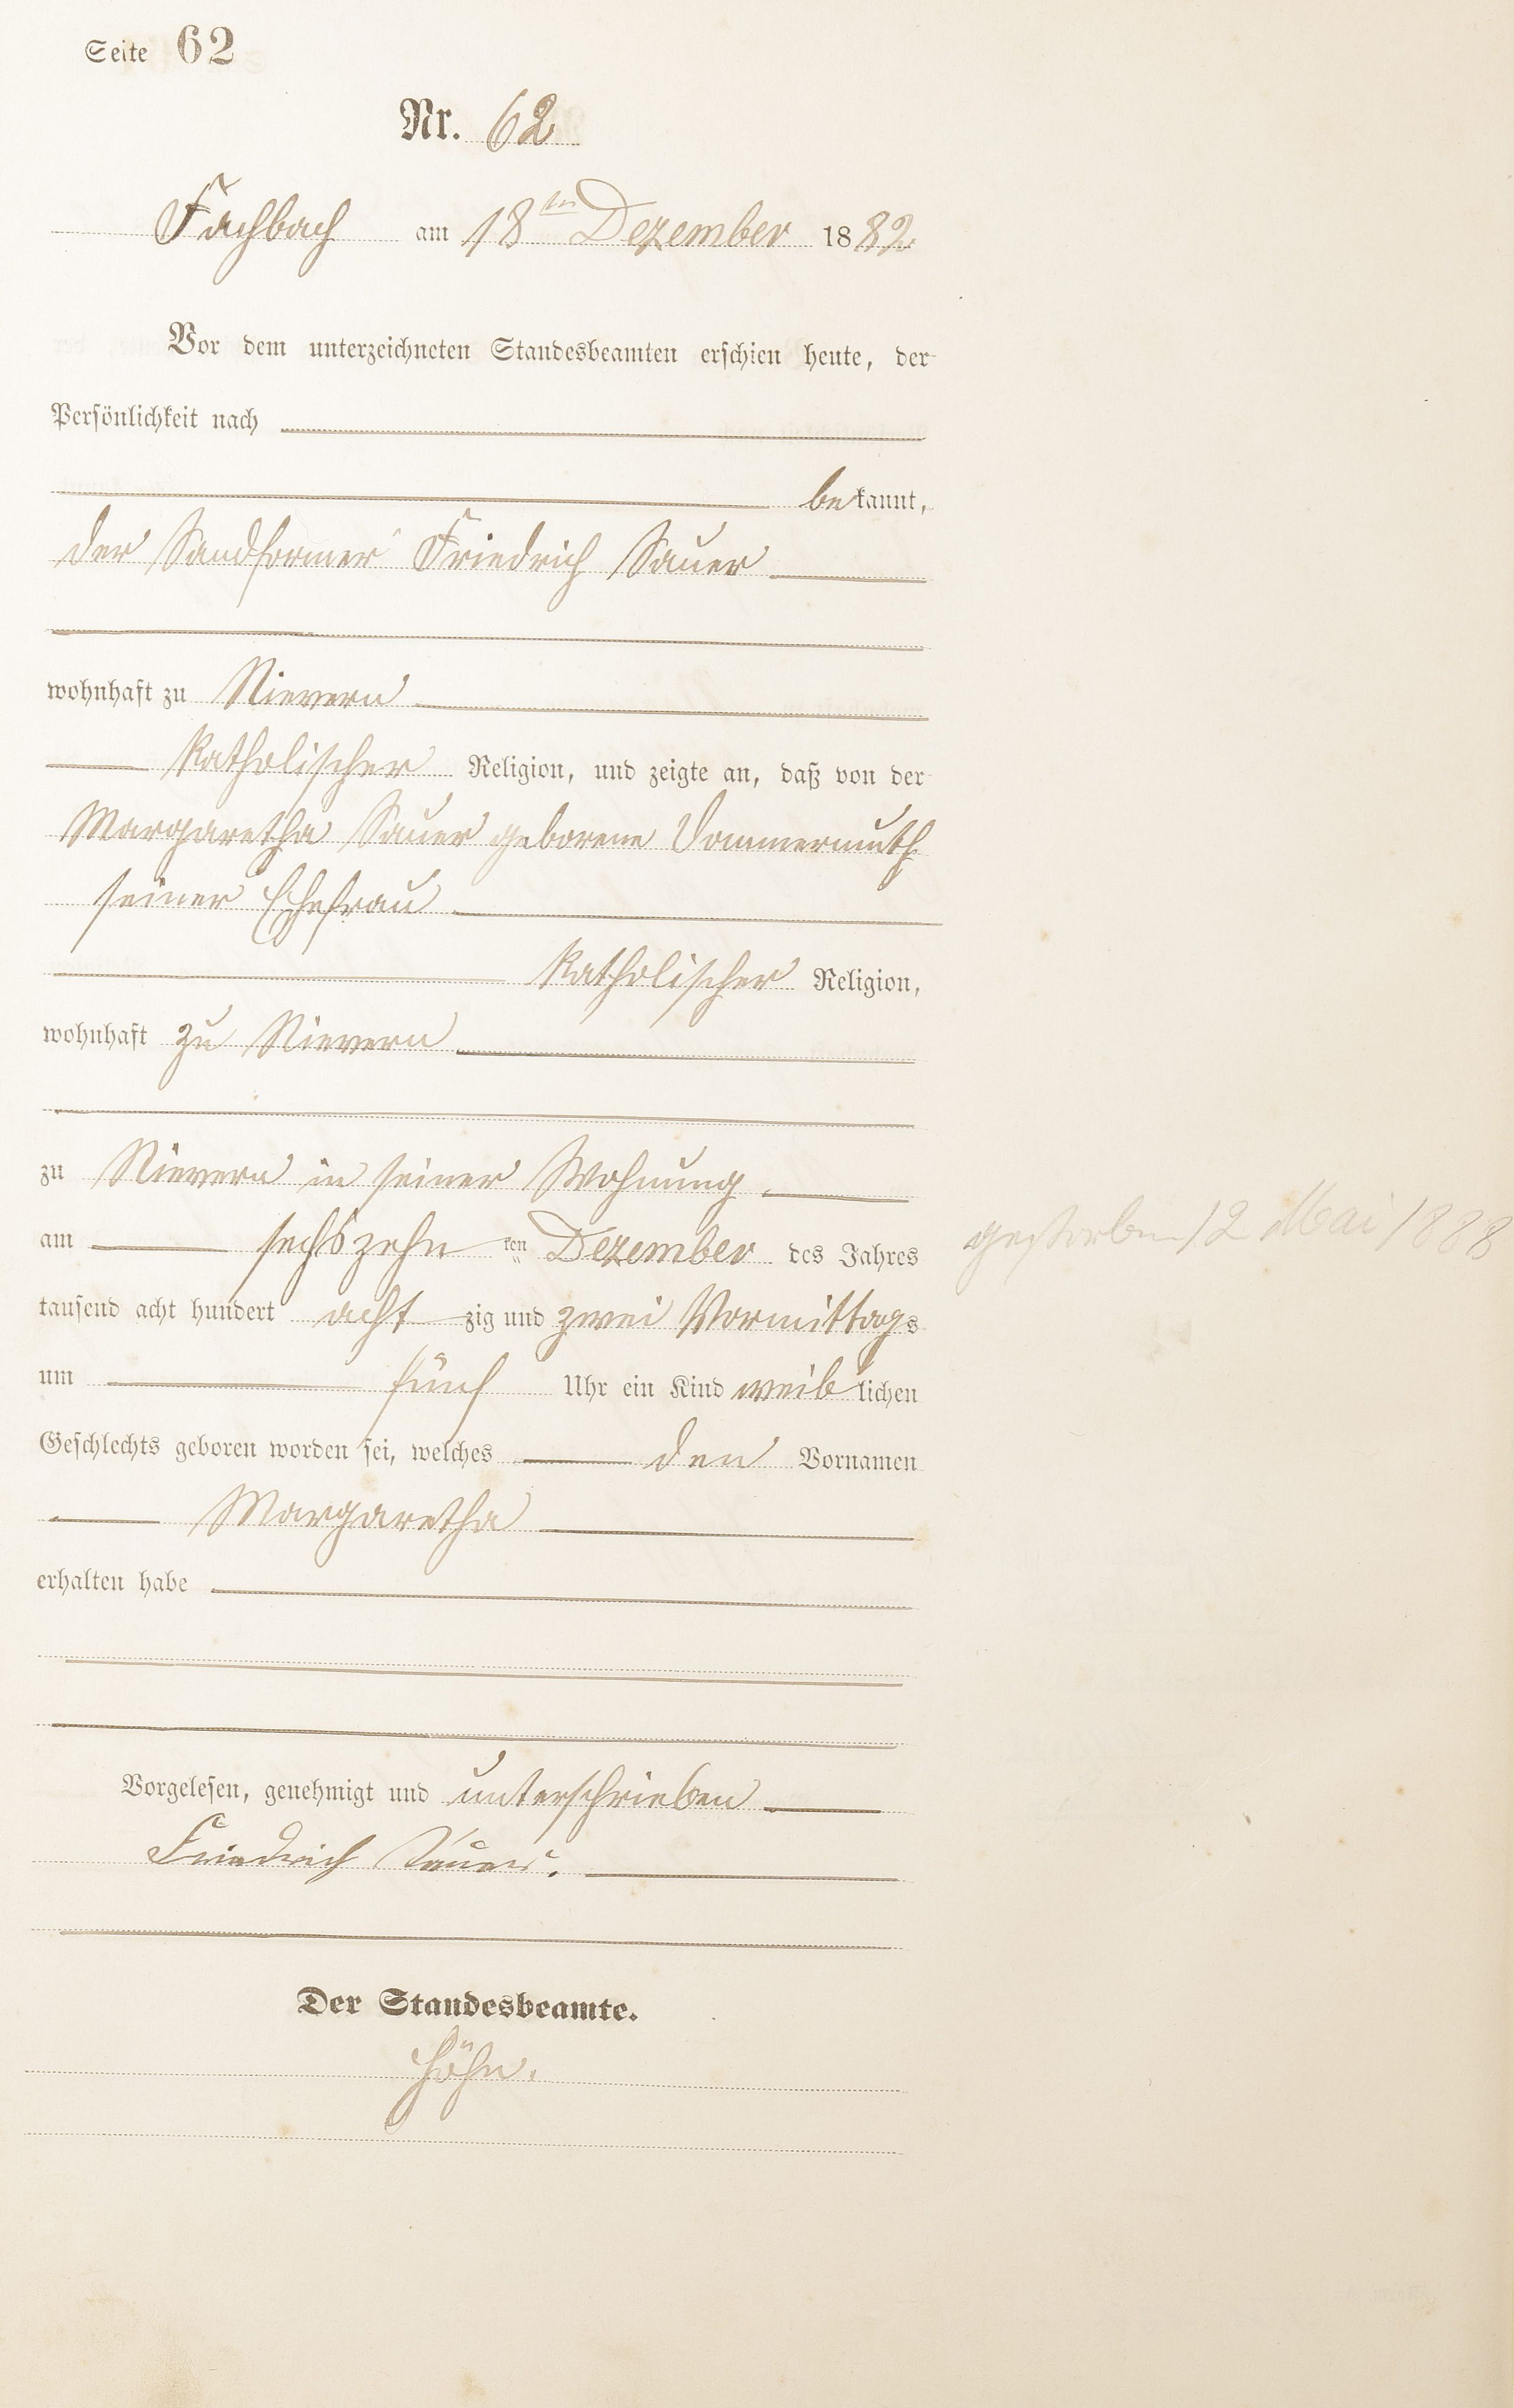 Seite 62
Nr. 62
Fachbach am 18ten Dezember 1882.
Vor dem unterzeichneten Standesbeamten erschien heute, der
Persönlichkeit nach
bekannt,
der Sandformer Friedrich Sauer
wohnhaft zu Nievern
katholischer Religion, und zeigte an, daß von der
Margaretha Sauer geborene Vommermuth
seiner Ehefrau
katholischer Religion,
wohnhaft zu Nievern
zu Nievern in seiner Wohnung
am sechszehnten Dezember des Jahres
tausend acht hundert achtzig und zwei Vormittags
um fünf Uhr ein Kind weiblichen
Geschlechts geboren worden sei, welches den Vornamen
Margaretha
erhalten habe
Vorgelesen, genehmigt und unterschrieben
Friedrich Sauer.
Der Standesbeamte.
Höhn.
gestorben 12 Mai 1888